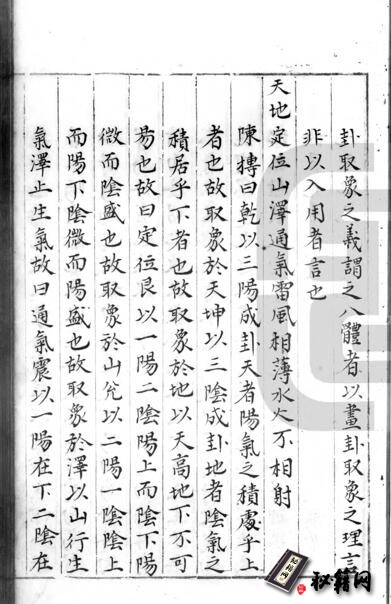 卦取象之義謂之八體者以畫卦取象之理言
非以入用者言也
天地定位山澤通氣雷風相薄水火不相射
陳摶曰乾以三陽成卦天者陽氣之積處乎上
者也故取象於天坤以三陰成卦地者陰氣之
積居乎下者也故取象於地以天高地下不可
易也故曰定位艮以一陽二陰陽上而陰下陽
微而陰盛也故取象於山兊以二陽一陰陰上
而陽下陰微而陽盛也故取象於澤以山行生
氣澤止生氣故曰通氣震以一陽在下二陰在
秘籍网